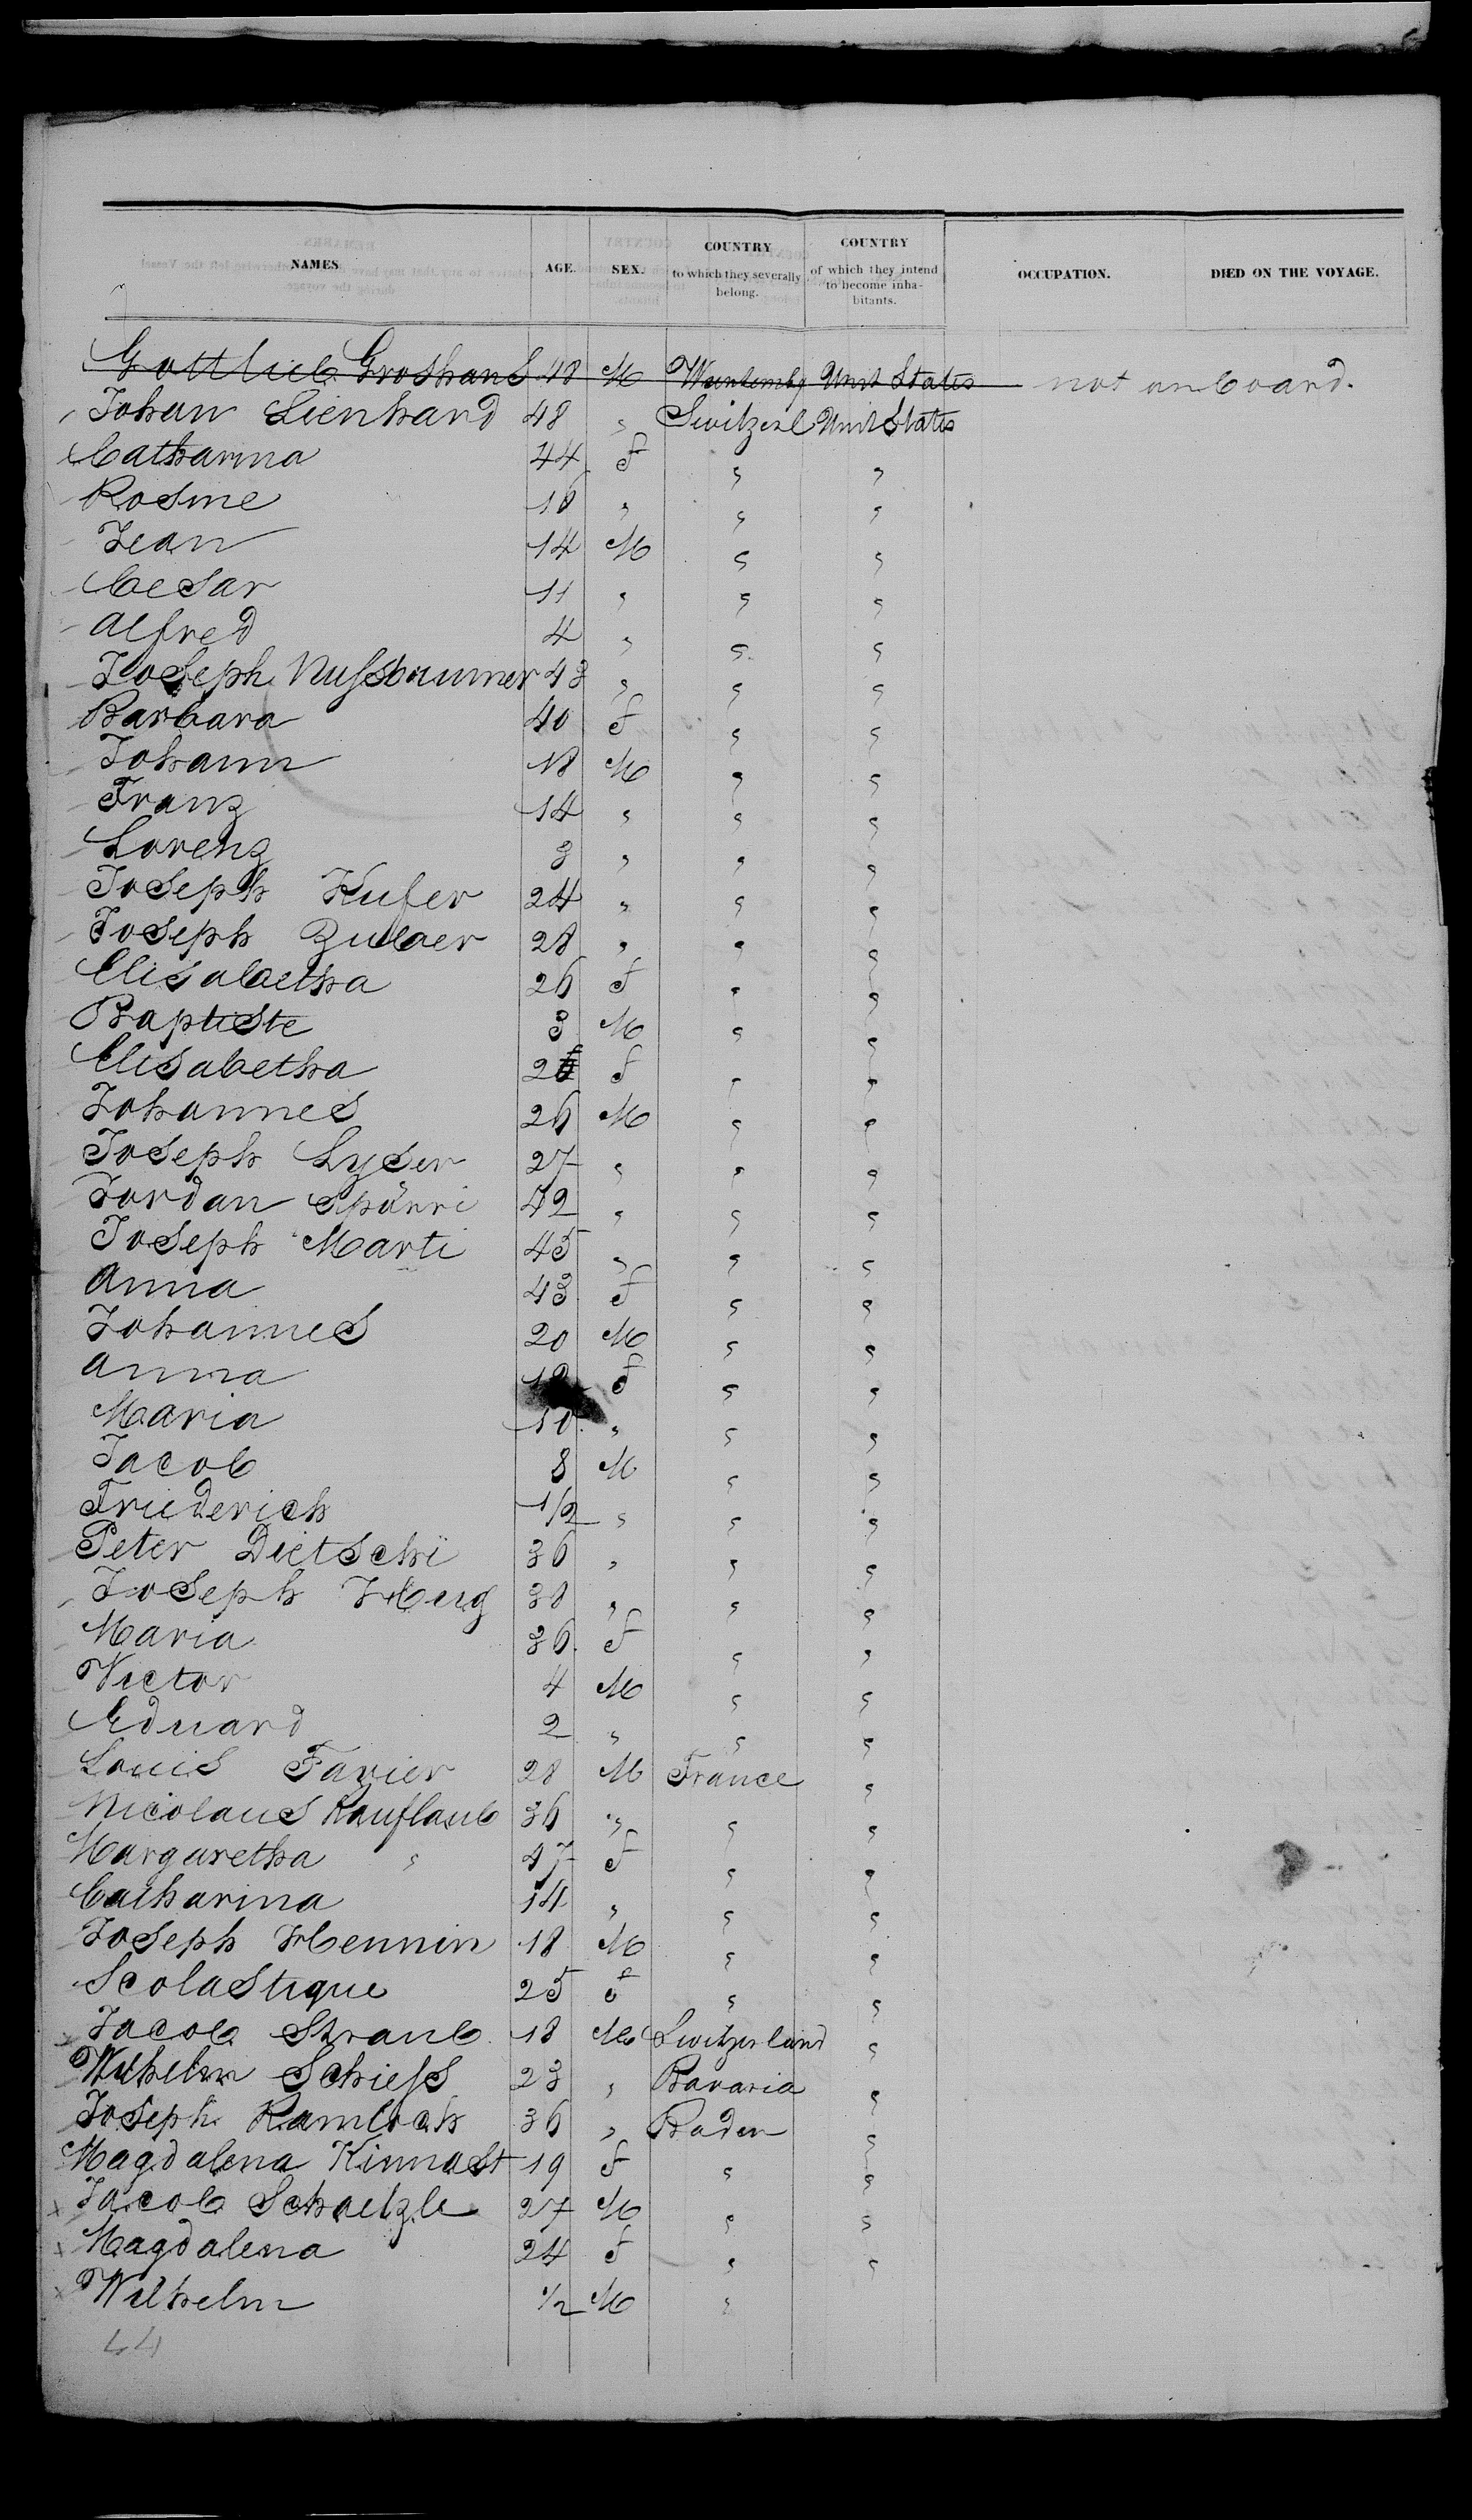 NAMES AGE. SEX. COUNTRY to which they severally belong. COUNTRY of which they intend to become inhabitants. OCCUPATION. DIED ON THE VOYAGE.
Gottlieb Groshans 48 M Wurtembg Unit States not on board.
Johan Lienhard 48 " Switzerl Unit States
Catharina 44 f " "
Rosine 16 " " "
Jean 14 M " "
Cesar 11 " " "
Alfred 4 " " "
Joseph Nussbaumer 43 " " "
Barbara 40 f " "
Johann 18 M " "
Franz 14 " " "
Lorenz 3 " " "
Joseph Kufer 24 " " "
Joseph 28 " " "
Elisabetha 26 f " "
Baptiste 3 M " "
Elisabetha f " "
Johannes 26 M " "
Joseph Lyser 27 " " "
Jordan Spörri 42 " " "
Joseph Marti 45 " " "
Anna 43 f " "
Johannes 20 M " "
Anna f " "
Maria 10 " " "
Jacob 8 M " "
Friederich 1/2 " " "
Peter Dietschi 36 " " "
Joseph Hug 38 " " "
Maria 36 f " "
Victor 4 M " "
Eduard 2 " " "
Louis Favier 28 M France "
Nicolaus Kauflaub 36 " " "
Margaretha " 47 f " "
Catharina 14 " " "
Joseph Hennin 18 M " "
Scolastique 25 f " "
Jacob Straub 18 M Switzerland "
Wilhelm Schiess 23 " Bavaria "
Joseph Ramloch 36 " Baden "
Magdalena Kinnast 19 f " "
Jacob Schaetzle 27 M " "
Magdalena 24 f " "
Wilhelm 1/2 M "
44